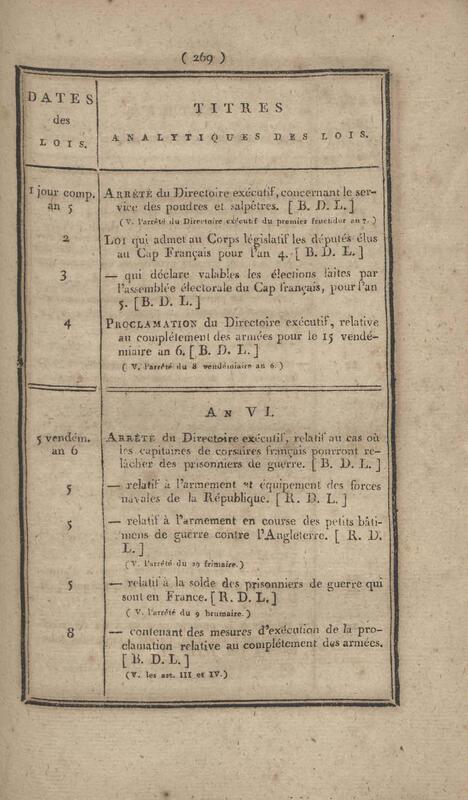 ( 269 )
DATES
des
LOIS.
TITRES
ANALYTIQUES DES LOIS.
1 jour comp.
an 5
ARRÊTÉ du Directoire exécutif, concernant le ser-
vice des poudres et salpêtres. [ B. D. L. ]
( V. l'arrêté du Directoire exécutif du premier fructidor an 7. )
2
LOI qui admet au Corps législatif les députés élus
au Cap Français pour l'an 4. [ B. D. L. ]
3
— qui déclare valables les élections faites par
l'assemblée électorale du Cap français, pour l'an
5. [ B. D. L. ]
4
PROCLAMATION du Directoire exécutif, relative
au complétement des armées pour le 15 vendé-
miaire an 6. [ B. D. L. ]
( V. l'arrêté du 8 vendémiaire an 6. )
AN VI.
5 vendém.
an 6
ARRÊTÉ du Directoire exécutif, relatif au cas où
les capitaines de corsaires français pourront re-
lâcher des prisonniers de guerre. [ B. D. L. ]
5
— relatif à l'armement et équipement des forces
navales de la République. [ R. D. L. ]
5
— relatif à l'armement en course des petits bâti-
mens de guerre contre l'Angleterre. [ R. D.
L. ]
( V. l'arrêté du 29 frimaire. )
5
— relatif à la solde des prisonniers de guerre qui
sont en France. [ R. D. L. ]
( V. l'arrêté du 9 brumaire. )
8
— contenant des mesures d'exécution de la pro-
clamation relative au complétement des armées.
[ B. D. L. ]
( V. les art. III et IV. )